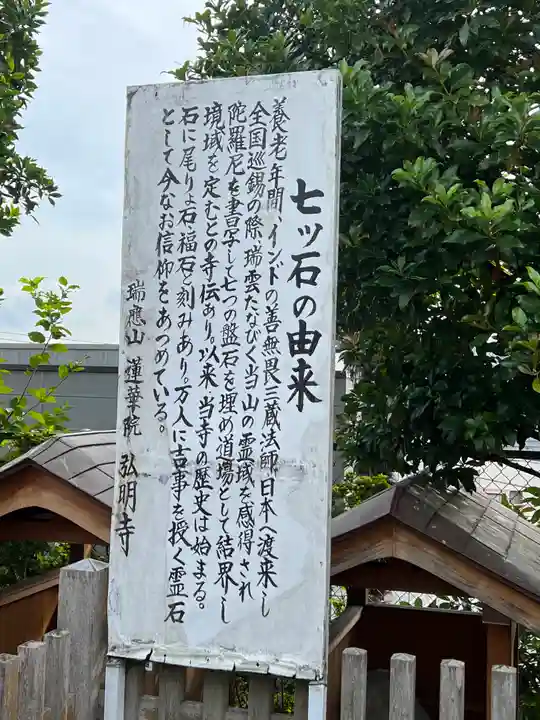 七ツ石の由来
養老年間、インドの善無畏三蔵法師、日本へ渡来し
全国巡錫の際、瑞雲たなびく当山の霊域を感得され
陀羅尼を書写して七つの盤石を埋め道場として結界し
境域を定むとの寺伝あり。以来、当寺の歴史は始まる。
石に尾りょ石、福石と刻みあり。万人に吉事を授く霊石
として今なお信仰をあつめている。
瑞應山 蓮華院 弘明寺